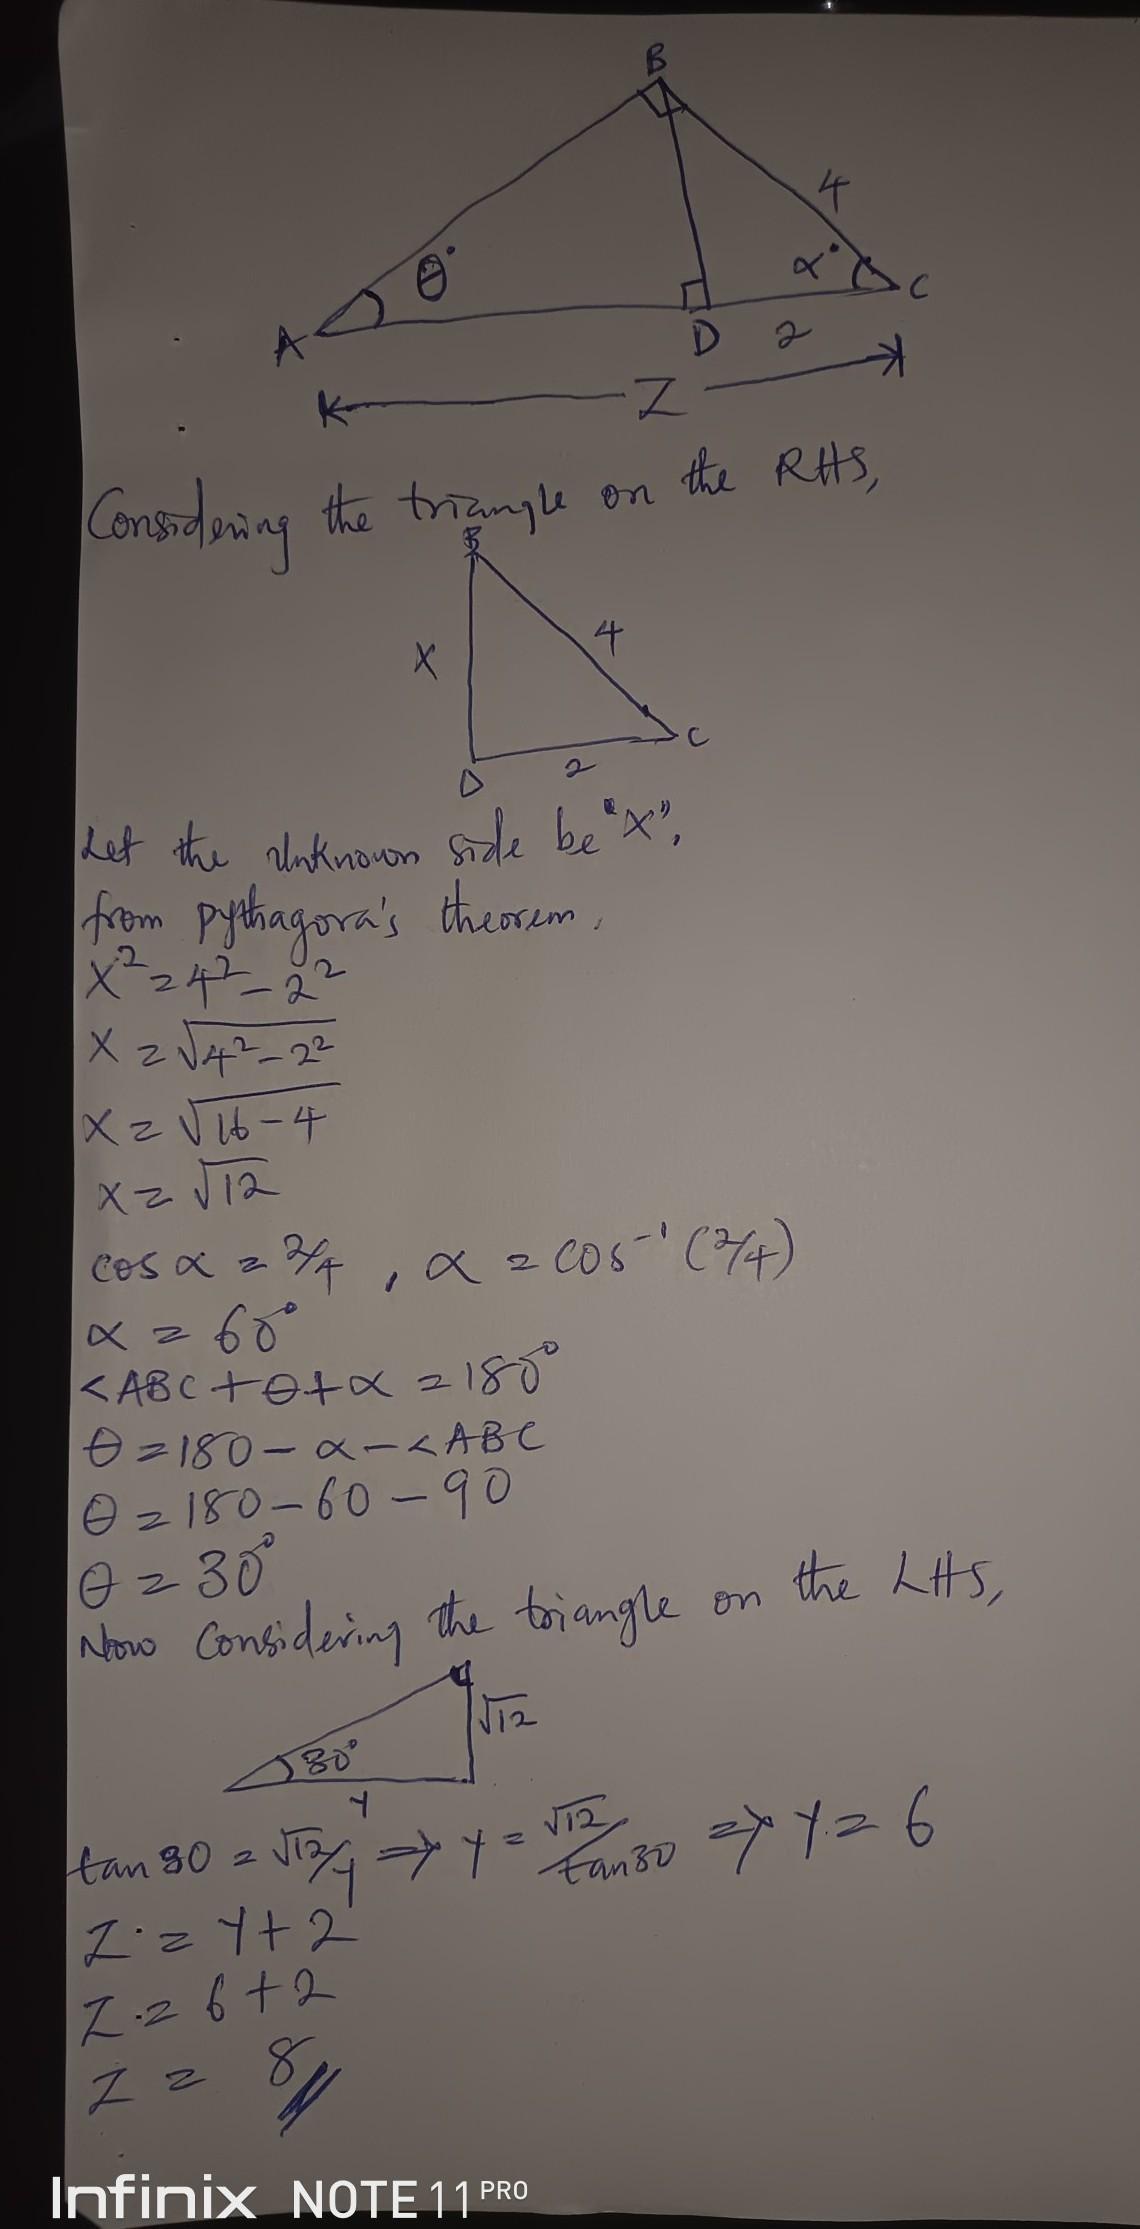 B
4
θ°
α°
A
D
2
C
Z
Considering the triangle on the RHS,
B
X
4
D
2
C
Let the unknown side be "X",
from pythagora's theorem,
X² = 4² - 2²
X = √4² - 2²
X = √16 - 4
X = √12
cos α = 2/4 , α = cos⁻¹ (2/4)
α = 60°
<ABC + θ + α = 180°
θ = 180 - α - <ABC
θ = 180 - 60 - 90
θ = 30°
Now Considering the triangle on the LHS,
30°
√12
Y
tan 30 = √12/Y ⇒ Y = √12/tan30 ⇒ Y = 6
Z = Y + 2
Z = 6 + 2
Z = 8
Infinix NOTE 11 PRO